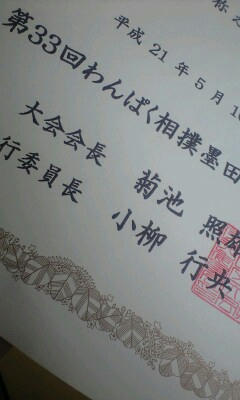 平成21年5月1
第33回わんぱく相撲墨田
大会会長 菊池 照雄
行委員長 小柳 行央